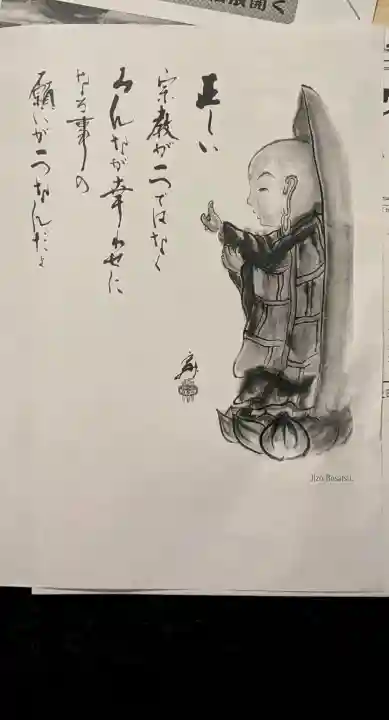 正しい
宗教が一つではなく
みんなが幸わせに
なる事の
願いが一つなんだよ
Jizo Bosatsu.
展開く